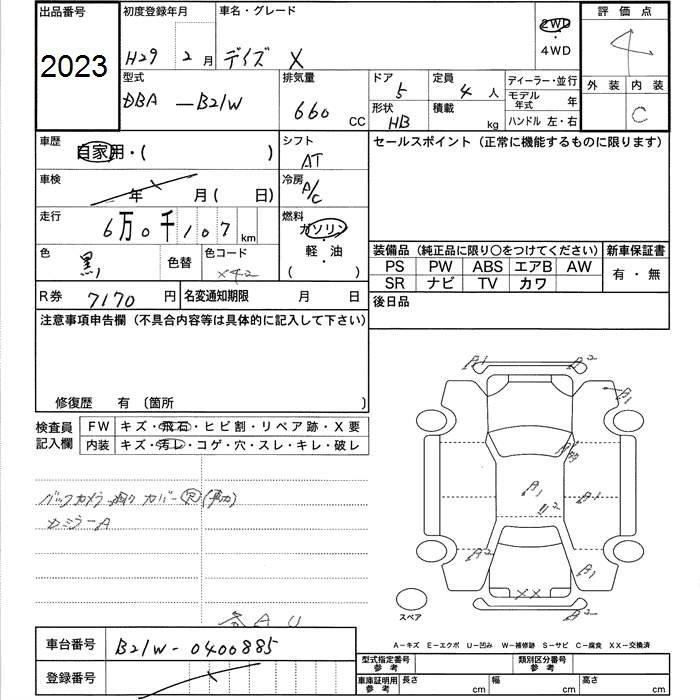 出品番号 初度登録年月 車名・グレード 2WD 評価点
2023 H29年 2月 デイズ X ・4WD 4
型式 排気量 ドア 定員 ディーラー・並行 外装 内装
DBA -B21W 660 CC 5 4人 モデル年式 年 C
形状 HB 積載 kg ハンドル 左・右
車歴 自家用・( ) シフト AT セールスポイント(正常に機能するものに限ります)
車検 年 月( 日) 冷房 A/C
走行 6万0千107km 燃料 ガソリン・軽油( )
色 黒 色替 色コード 装備品(純正品に限り○をつけてください) 新車保証書
PS PW ABS エアB AW 有・無
SR ナビ TV カワ
R券 7170円 名変通知期限 月 日 後日品
注意事項申告欄(不具合内容等は具体的に記入して下さい)
修復歴 有 〔箇所 〕
検査員記入欄 FW キズ・飛石・ヒビ割・リペア跡・X要
内装 キズ・汚レ・コゲ・穴・スレ・キレ・破レ
バックカメラ カバー
カジラーA
A1 A2
A1
A1 A1
U2
A2 A1
XX
スペア
A U
A-キズ E-エクボ U-凹み W-補修跡 S-サビ C-腐食 XX-交換済
車台番号 B21W-0400885
登録番号
型式指定番号 参考 類別区分番号 参考
車庫証明用 参考 長さ cm 幅 cm 高さ cm